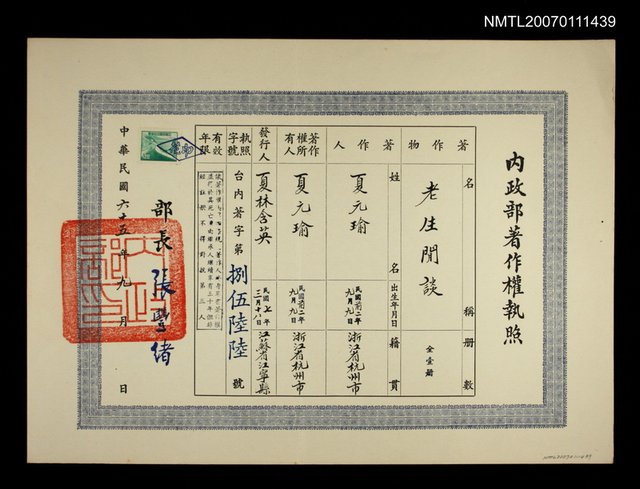 NMTL20070111439
內政部著作權執照
著作物
名稱
冊數
老生閒談
全壹冊
著作人
姓名
出生年月日
籍貫
夏元瑜
民國前二年九月九日
浙江省杭州市
著作權所有人
夏元瑜
民國前二年九月九日
浙江省杭州市
發行人
夏林含英
民國七年三月十八日
江蘇省江寧縣
執照字號
台內著字第捌伍陸陸號
有效年限
部長 張豐緒
中華民國六十五年九月 日
NMTL20070111439